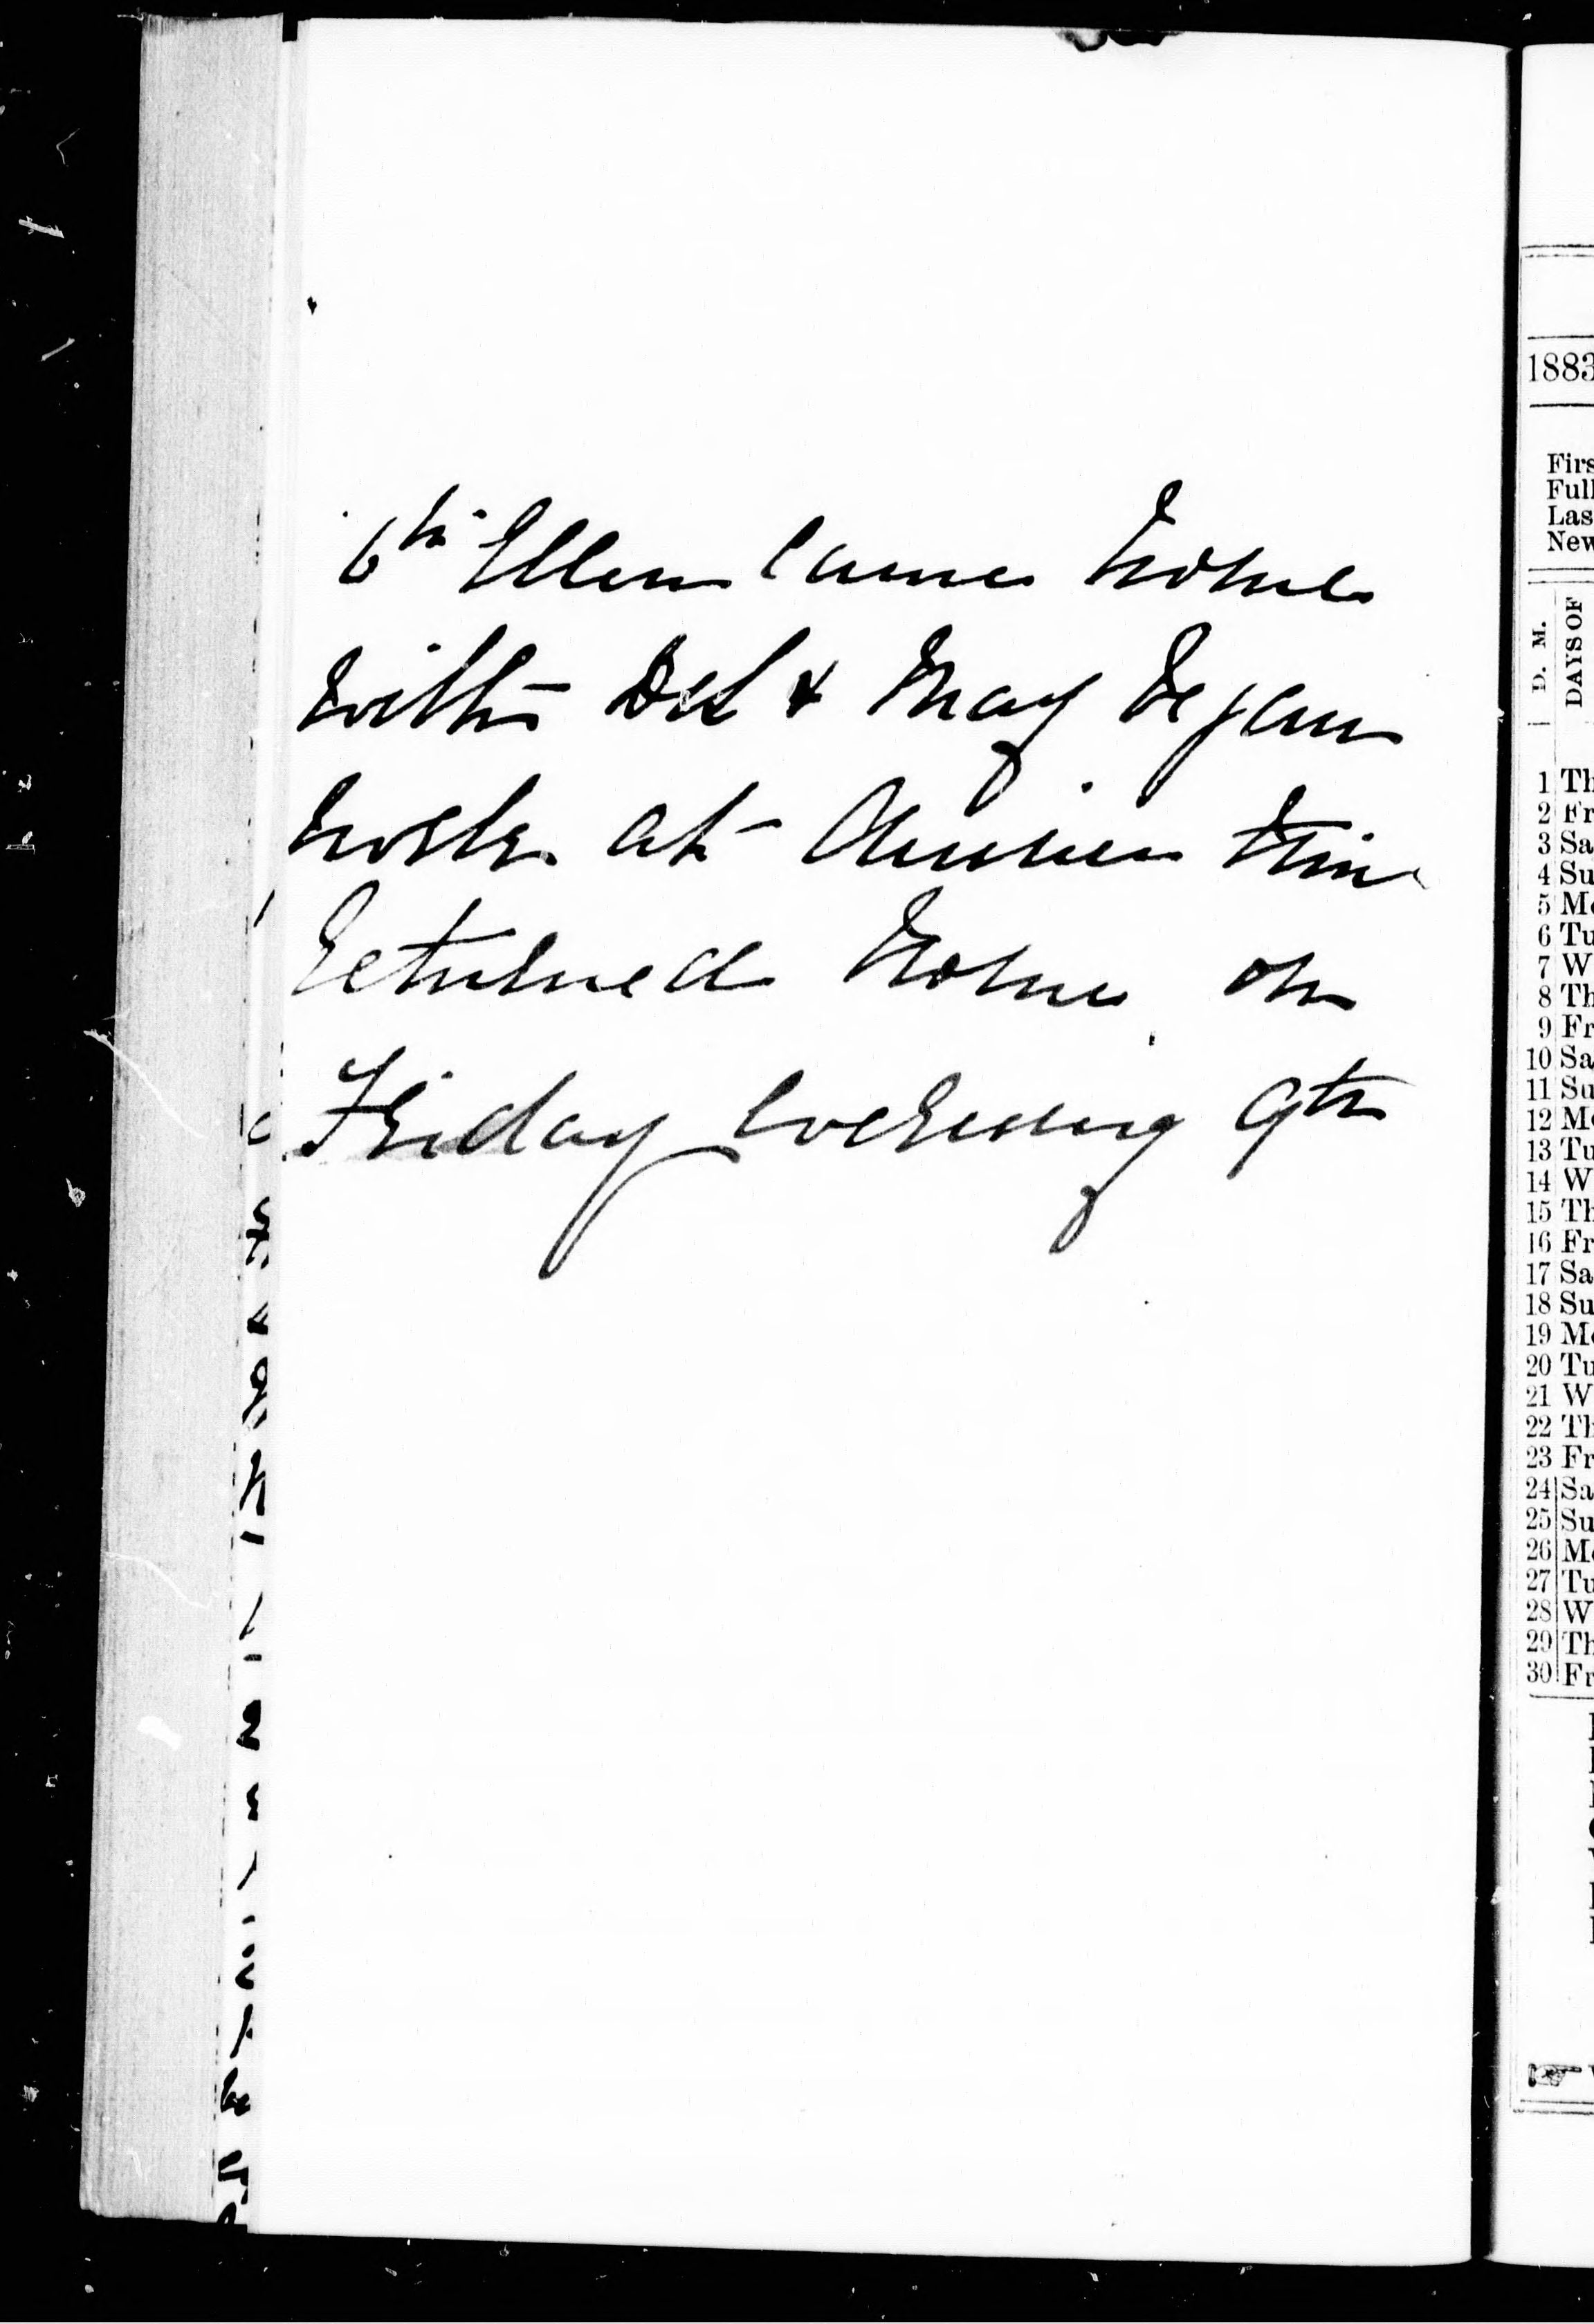 6th Ellen came home
with Del & May began
work at dinner time
Returned home on
Friday evening 9th
1883
Firs
Full
Las
New
D. M.
DAYS OF
1 Th
2 Fr
3 Sa
4 Su
5 Mo
6 Tu
7 W
8 Th
9 Fr
10 Sa
11 Su
12 Mo
13 Tu
14 W
15 Th
16 Fr
17 Sa
18 Su
19 Mo
20 Tu
21 W
22 Th
23 Fr
24 Sa
25 Su
26 Mo
27 Tu
28 W
29 Th
30 Fr